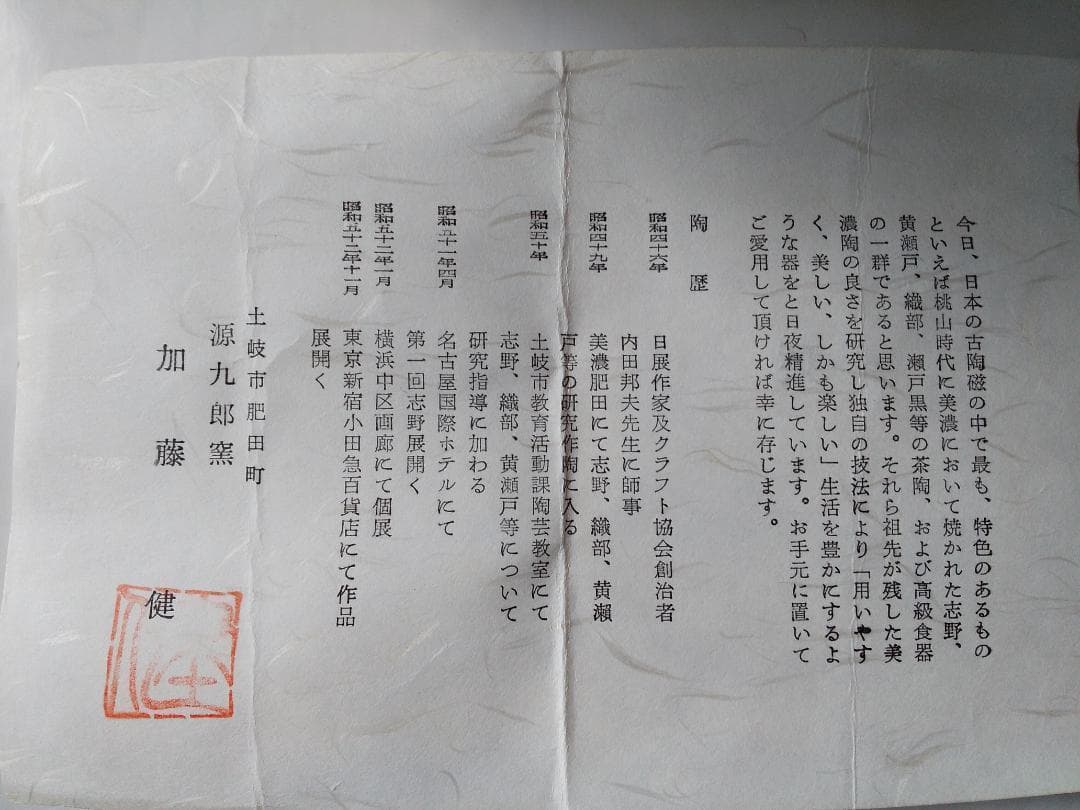 今日、日本の古陶磁の中で最も、特色のあるもの
といえば桃山時代に美濃において焼かれた志野、
黄瀬戸、織部、瀬戸黒等の茶陶、および高級食器
の一群であると思います。それら祖先が残した美
濃陶の良さを研究し独自の技法により「用いやす
く、美しい、しかも楽しい」生活を豊かにするよ
うな器をと日夜精進しています。お手元に置いて
ご愛用して頂ければ幸に存じます。
陶歴
昭和四十六年 日展作家及クラフト協会創治者
内田邦夫先生に師事
昭和四十九年 美濃肥田にて志野、織部、黄瀬
戸等の研究作陶に入る
昭和五十年 土岐市教育活動課陶芸教室にて
志野、織部、黄瀬戸等について
研究指導に加わる
昭和五十一年四月 名古屋国際ホテルにて
第一回志野展開く
昭和五十二年一月 横浜中区画廊にて個展
昭和五十二年十一月 東京新宿小田急百貨店にて作品
展開く
土岐市肥田町
源九郎窯
加藤健